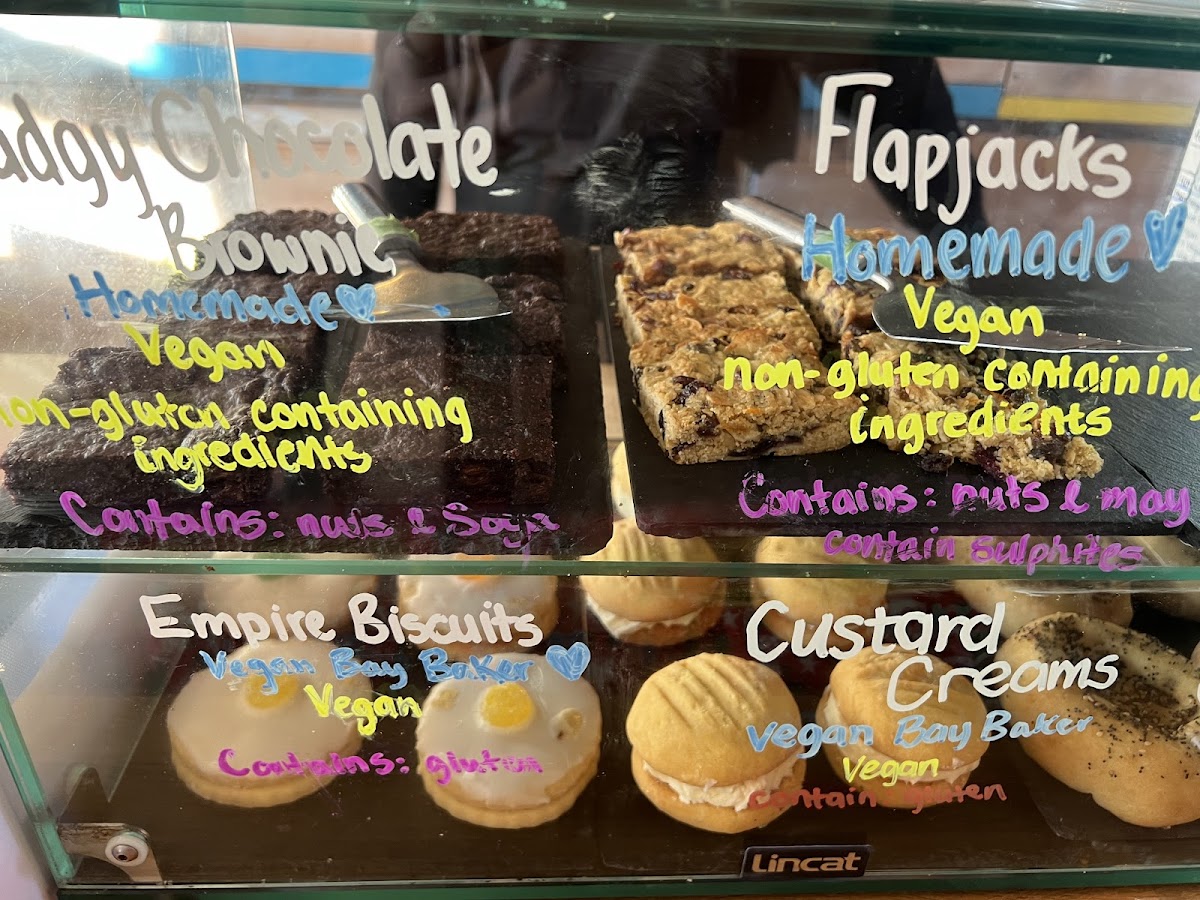 udgy Chocolate
Brownie
Homemade
Vegan
non-gluten containing
ingredients
Contains: nuts & Soya
Flapjacks
Homemade
Vegan
non-gluten containing
ingredients
Contains: nuts & may
contain sulphites
Empire Biscuits
Vegan Bay Baker
Vegan
Contains: gluten
Custard
Creams
Vegan Bay Baker
Vegan
contain gluten
Lincat